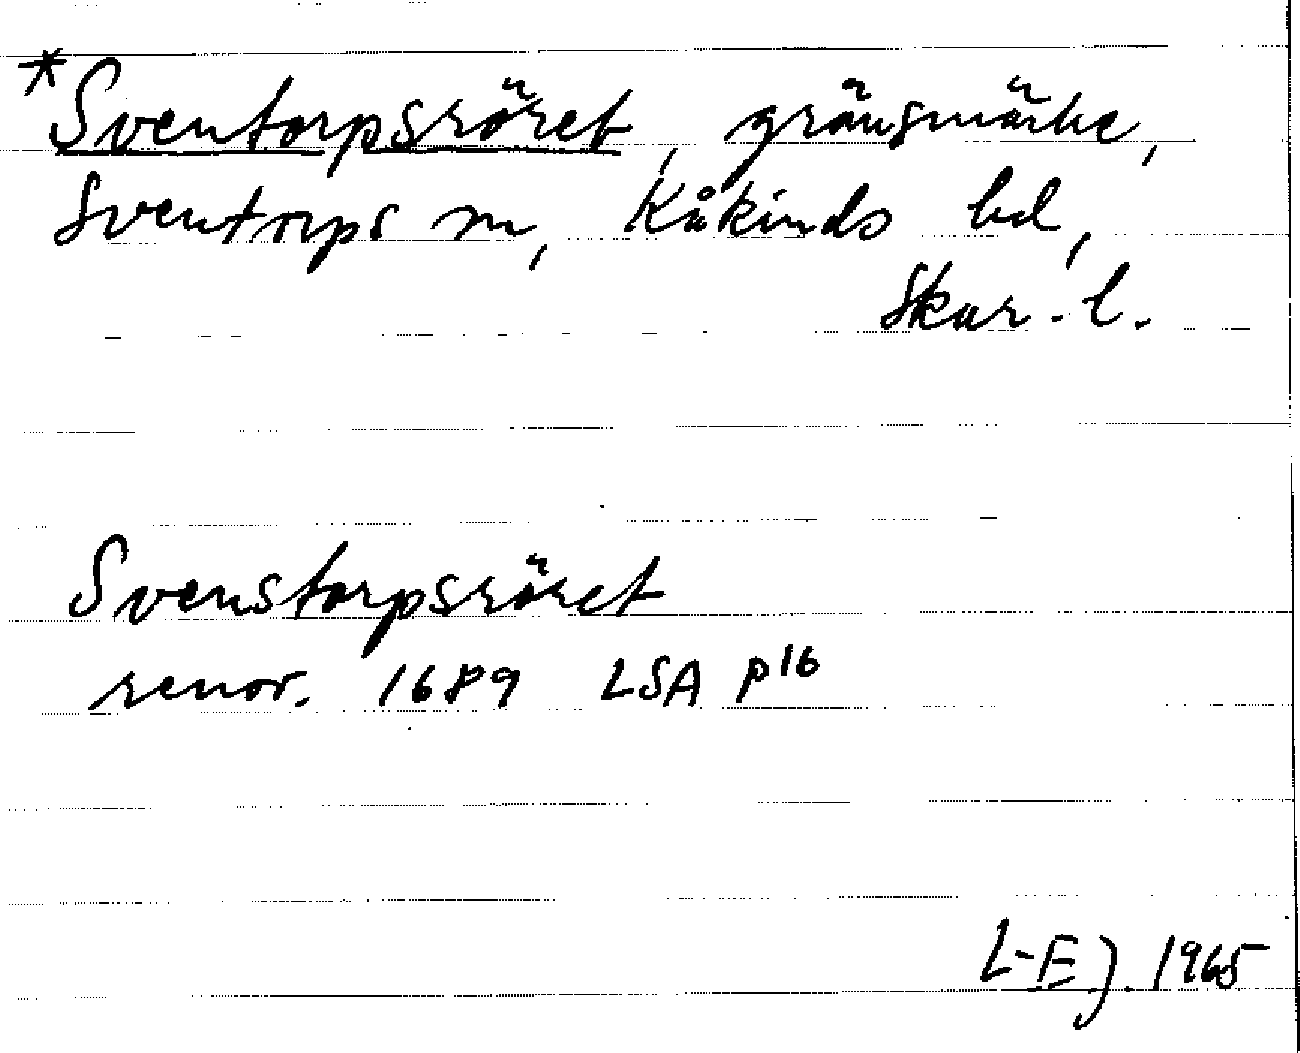 *Sventorpsröret, gränsmärke,
Sventorps sn, Kåkinds hd,
Skar. l.
Svenstorpsröret
renov. 1689 LSA p16
L-E J. 1965